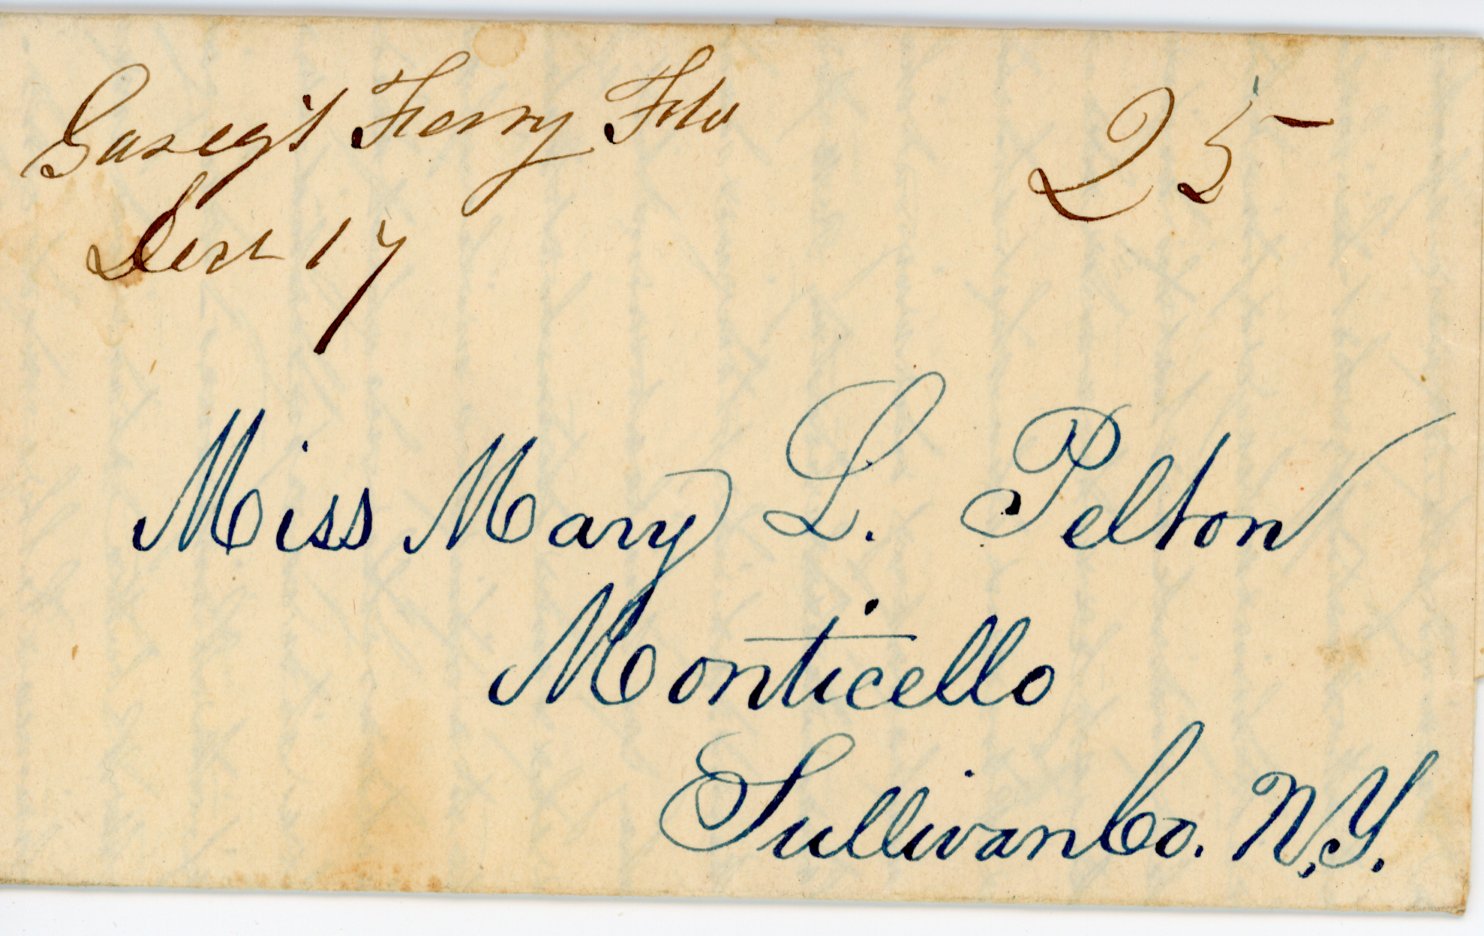 Garey's Ferry Flo
25
Decr 17
Miss Mary L. Pelton
Monticello
Sullivan Co. N.Y.